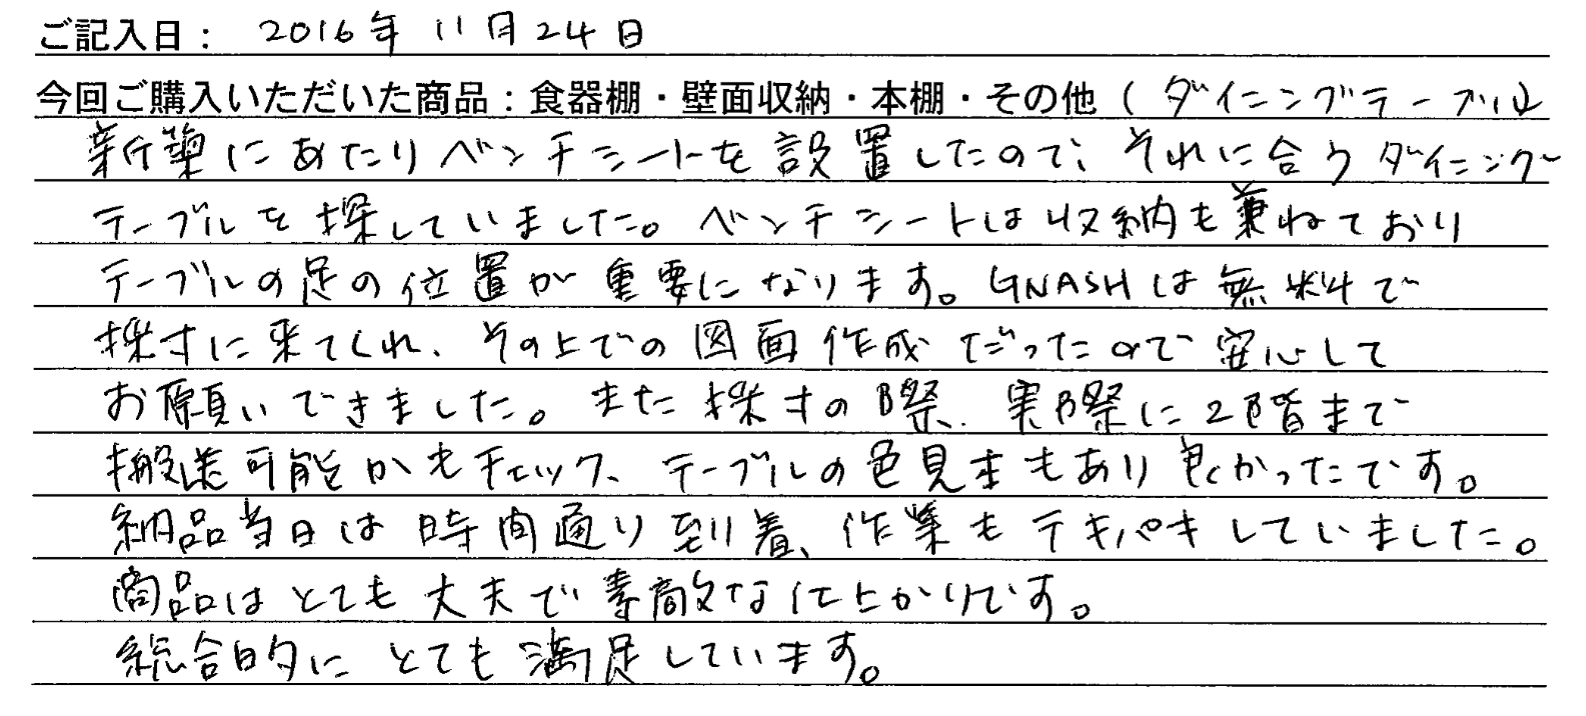 ご記入日： 2016年 11月24日
今回ご購入いただいた商品：食器棚・壁面収納・本棚・その他（ダイニングテーブル）
新築にあたりベンチシートを設置したので、それに合うダイニング
テーブルを探していました。ベンチシートは収納も兼ねており
テーブルの足の位置が重要になります。GNASHは無料で
採寸に来てくれ、その上での図面作成だったので安心して
お願いできました。また採寸の際、実際に2階まで
搬送可能かもチェック、テーブルの色見本もあり良かったです。
納品当日は時間通り到着、作業もテキパキしていました。
商品はとても丈夫で素敵な仕上がりです。
総合的にとても満足しています。